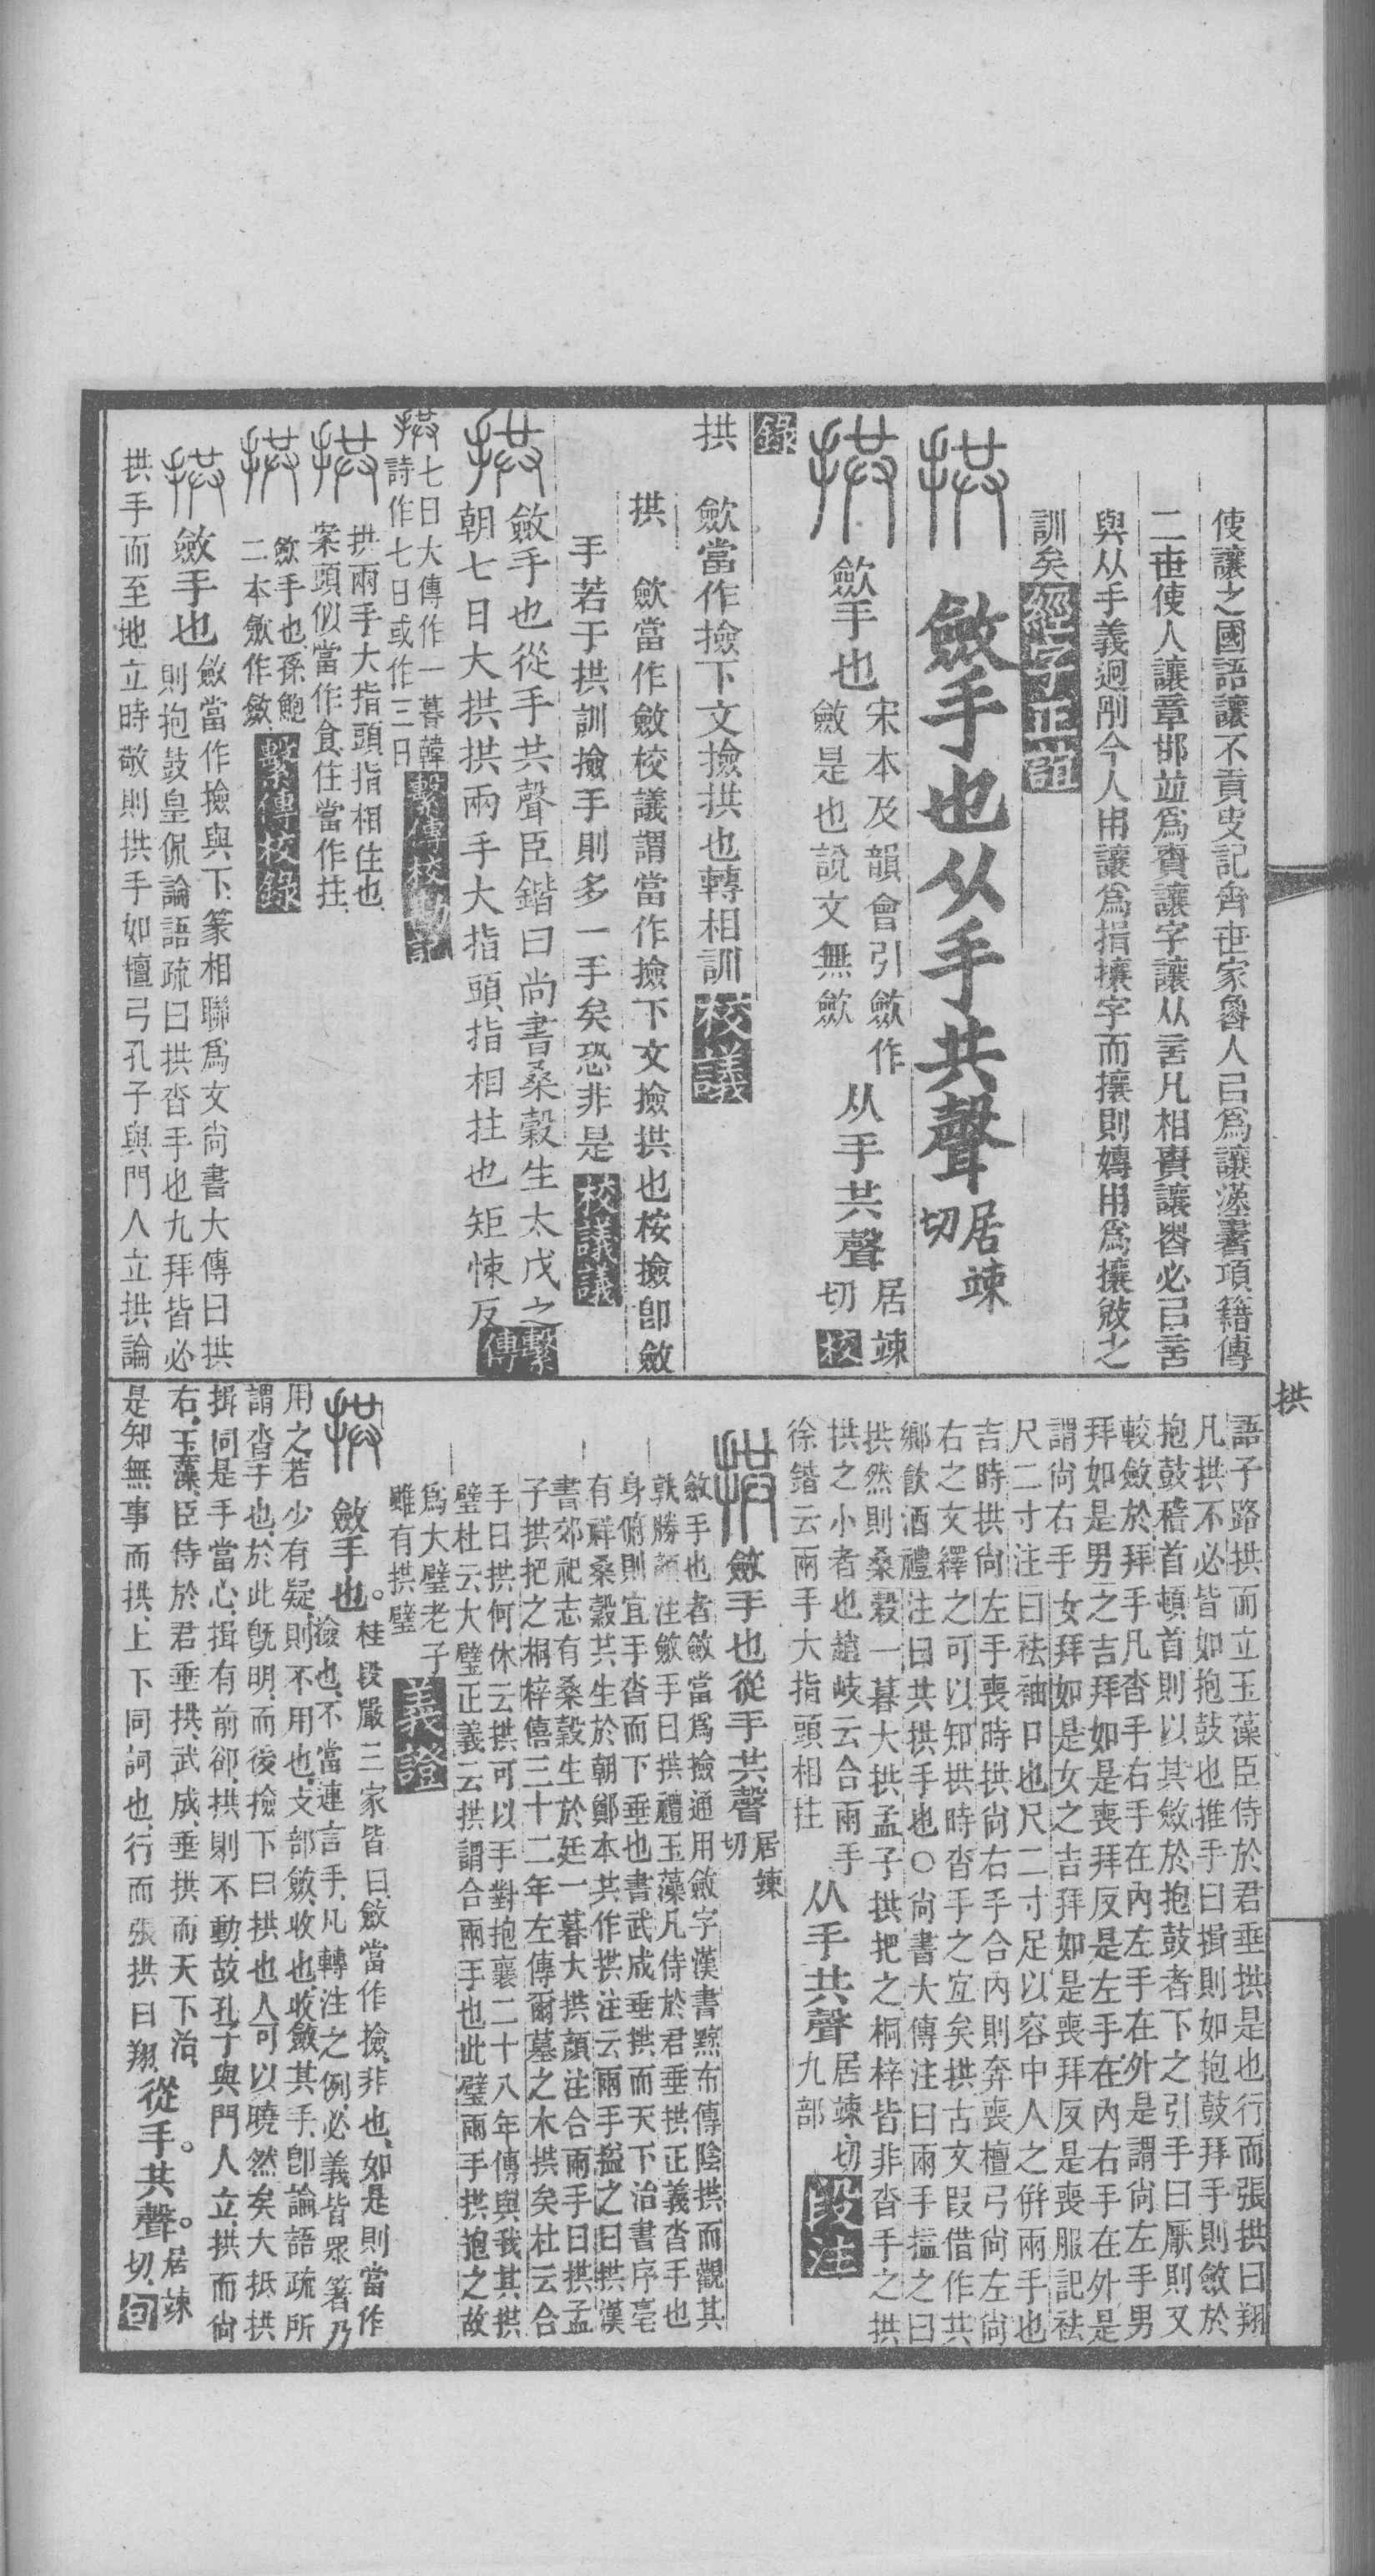 使讓之國語讓不貢史記齊世家魯人㠯爲讓漢書項籍傳
二世使人讓章邯竝爲責讓字讓从言凡相責讓者必㠯言
與从手義迥別今人用讓爲揖攘字而攘則專用爲攘敚之
訓矣經字正誼
拱 斂手也从手共聲居竦切
拱 斂手也宋本及韻會引斂作斂是也說文無歛从手共聲居竦切校
錄
拱 斂當作撿下文撿拱也轉相訓校議
拱 斂當作斂校議謂當作撿下文撿拱也桉撿卽斂
手若于拱訓撿手則多一手矣恐非是校議議
拱 斂手也從手共聲臣鍇曰尚書桑榖生太戊之
朝七日大拱拱兩手大指頭指相拄也矩悚反繫傳
拱七日大傳作一暮韓
詩作七日或作三日繫傳校勘記
拱 拱兩手大指頭指相住也
案頭似當作食住當作拄
拱 斂手也孫鮑
二本歛作斂繫傳校錄
拱 斂手也斂當作撿與下篆相聯爲文尚書大傳曰拱
則抱鼓皇侃論語疏曰拱沓手也九拜皆必
拱手而至地立時敬則拱手如檀弓孔子與門人立拱論
拱
語子路拱而立玉藻臣侍於君垂拱是也行而張拱曰翔
凡拱不必皆如抱鼓也推手曰揖則如抱鼓拜手則斂於
抱鼓稽首頓首則以其斂於抱鼓者下之引手曰厭則又
較斂於拜手凡沓手右手在內左手在外是謂尚左手男
拜如是男之吉拜如是喪拜反是左手在內右手在外是
謂尚右手女拜如是女之吉拜如是喪拜反是喪服記袪
尺二寸注曰袪袖口也尺二寸足以容中人之倂兩手也
吉時拱尚左手喪時拱尚右手合內則奔喪檀弓尚左尚
右之文繹之可以知拱時沓手之宜矣拱古文叚借作共
鄉飲酒禮注曰共拱手也〇尚書大傳注曰兩手搤之曰
拱然則桑榖一暮大拱孟子拱把之桐梓皆非沓手之拱
拱之小者也趙岐云合兩手
徐鍇云兩手大指頭相拄从手共聲居竦切九部段注
拱 斂手也從手共聲居竦切
斂手也者斂當爲撿通用斂字漢書黥布傳陰拱而觀其
孰勝顏注斂手曰拱禮玉藻凡侍於君垂拱正義沓手也
身俯則宜手沓而下垂也書武成垂拱而天下治書序亳
有祥桑榖共生於朝鄭本共作拱注云兩手搤之曰拱漢
書郊祀志有桑榖生於廷一暮大拱顏注合兩手曰拱孟
子拱把之桐梓僖三十二年左傳爾墓之木拱矣杜云合
手曰拱何休云拱可以手對抱襄二十八年傳與我其拱
璧杜云大璧正義云拱謂合兩手也此璧兩手拱抱之故
爲大璧老子
雖有拱璧義證
拱 斂手也。桂段嚴三家皆曰斂當作撿非也如是則當作
撿也不當連言手凡轉注之例必義皆眾箸乃
用之若少有疑則不用也攴部斂收也收斂其手卽論語疏所
謂沓手也於此旣明而後撿下曰拱也人可以曉然矣大抵拱
揖同是手當心揖有前卻拱則不動故孔子與門人立拱而尚
右玉藻臣侍於君垂拱武成垂拱而天下治
是知無事而拱上下同詞也行而張拱曰翔從手。共聲。居竦切句